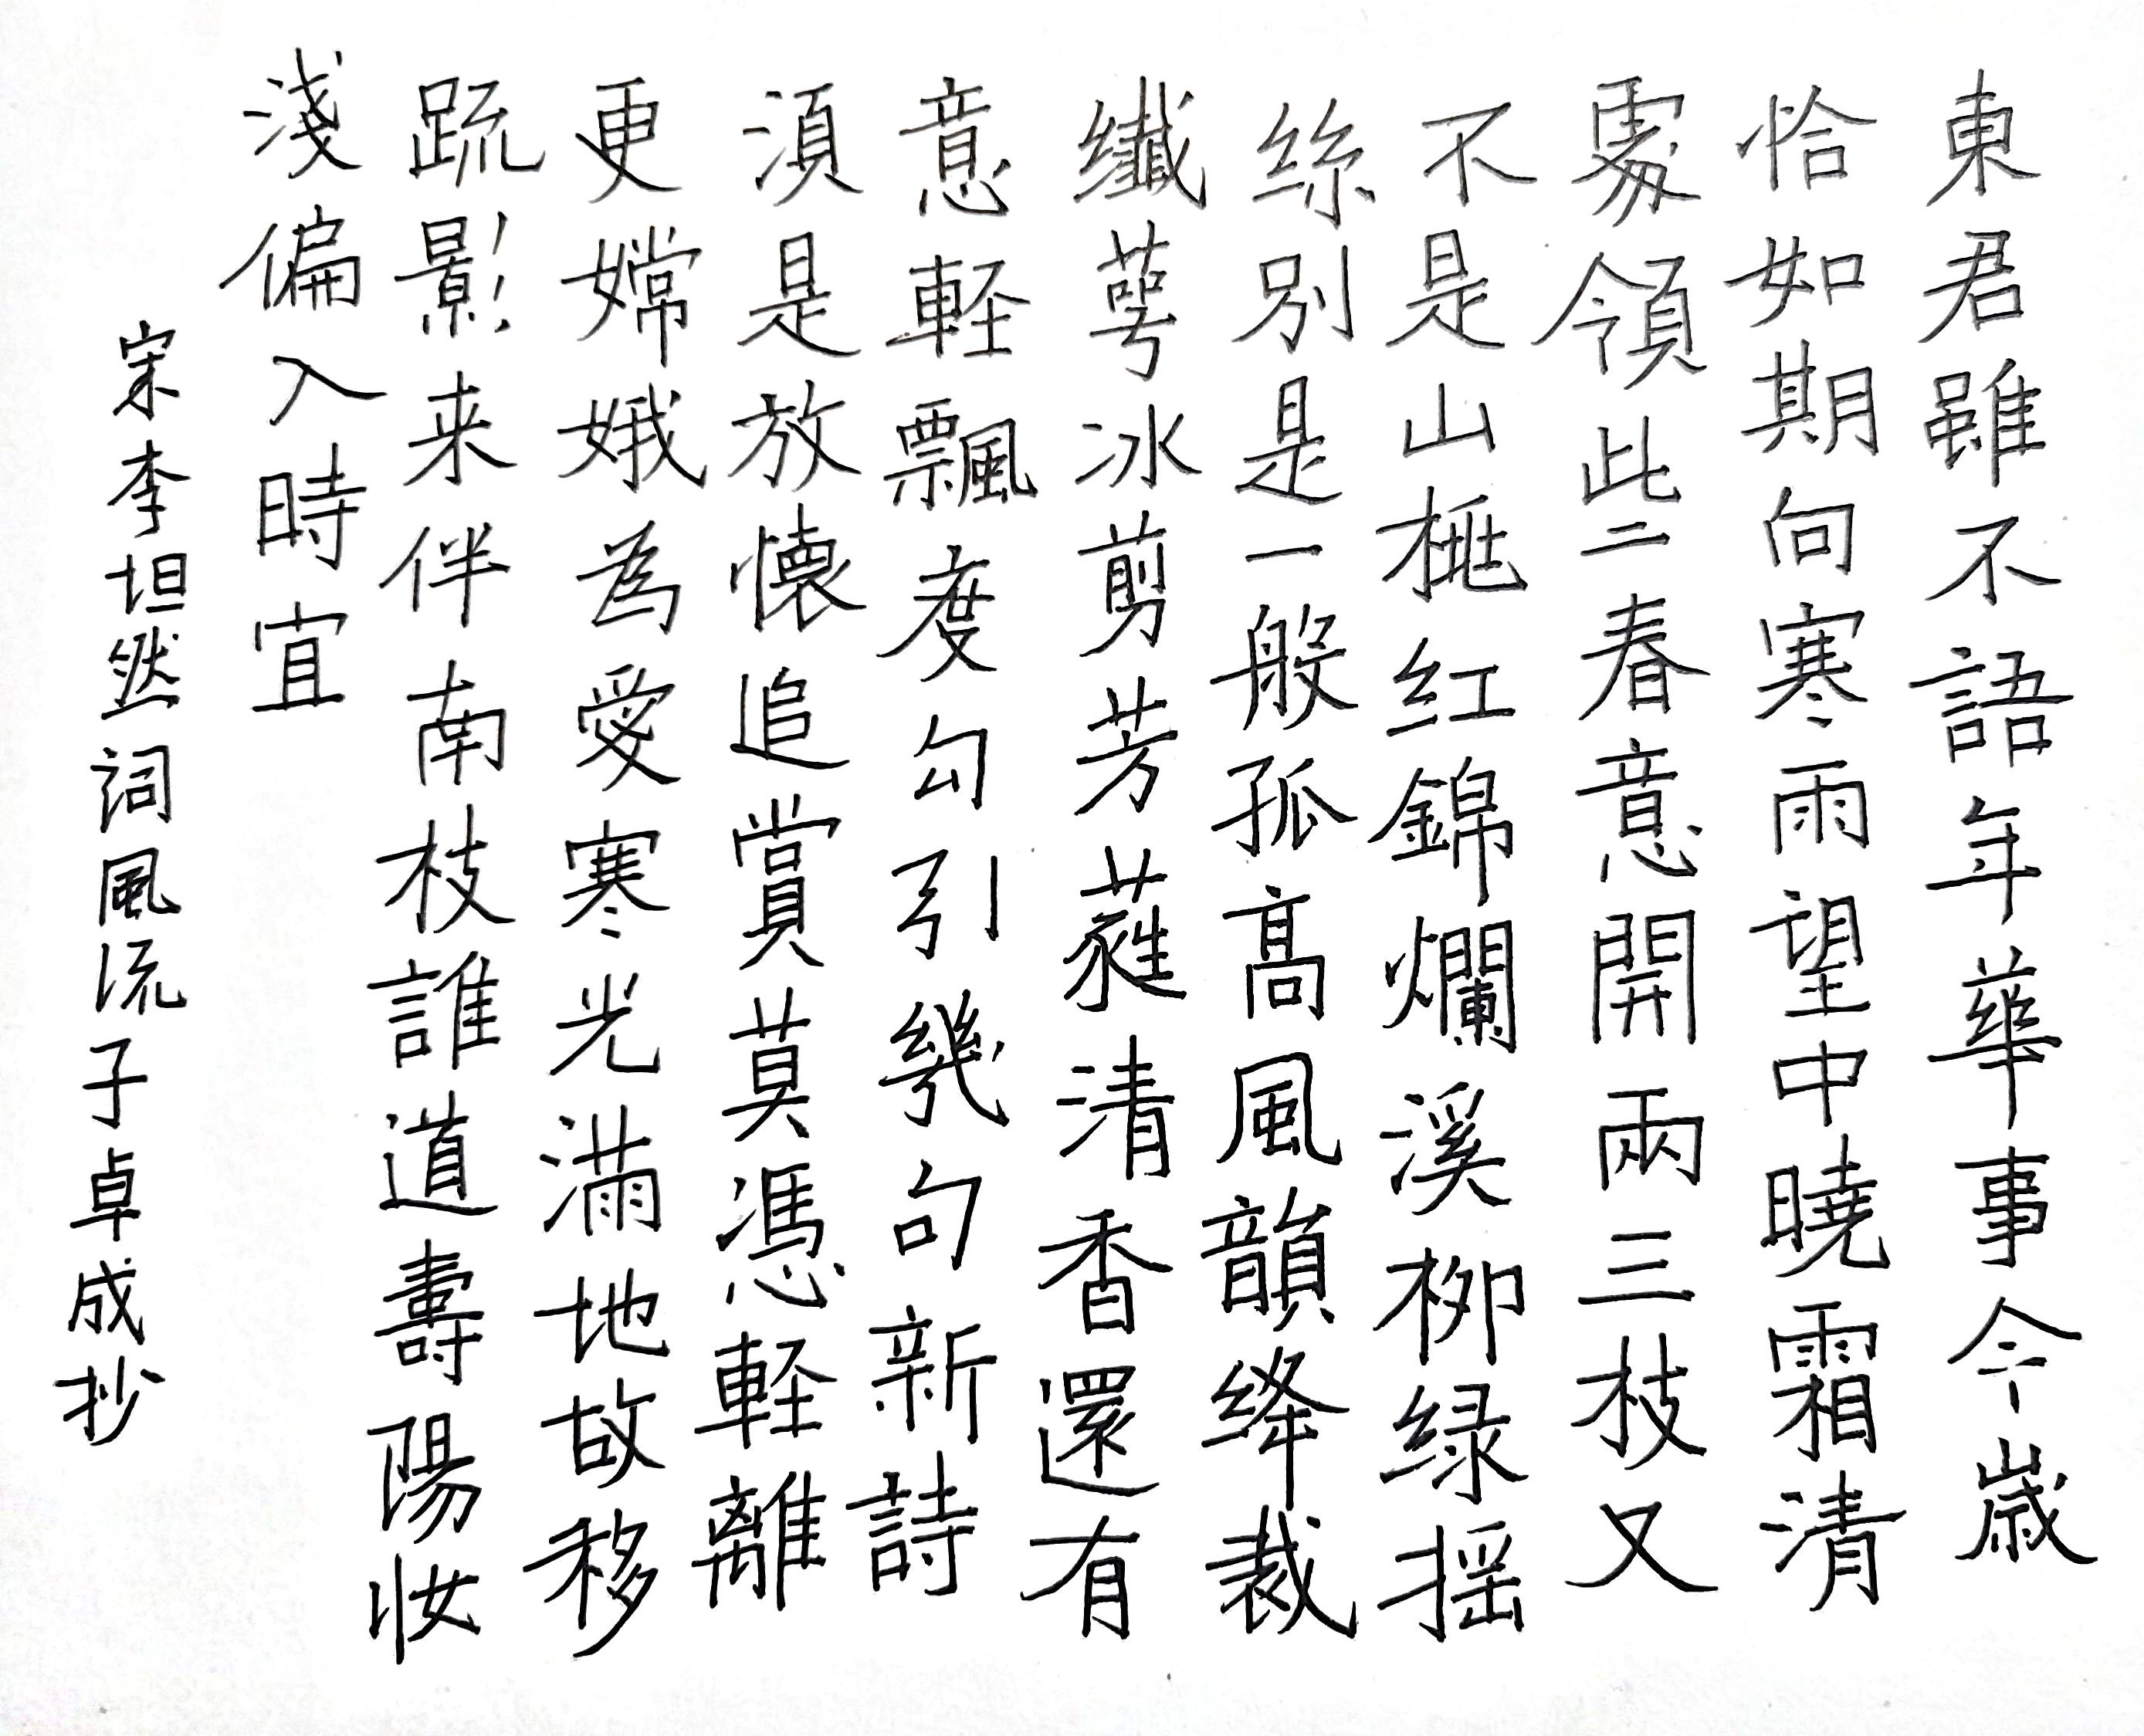 東君雖不語年華事今歲
恰如期向寒雨望中曉霜清
處領此二春意開兩三枝又
不是山桃紅錦爛溪柳绿摇
絲別是一般孤高風韻絳裁
纖萼冰剪芳蕤清香還有
意軽飄度勾引幾句新詩
須是放懷追賞莫憑軽離
更嫦娥為愛寒光滿地故移
疏影来伴南枝誰道壽陽妝
淺偏入時宜
宋李坦然詞風流子卓成抄